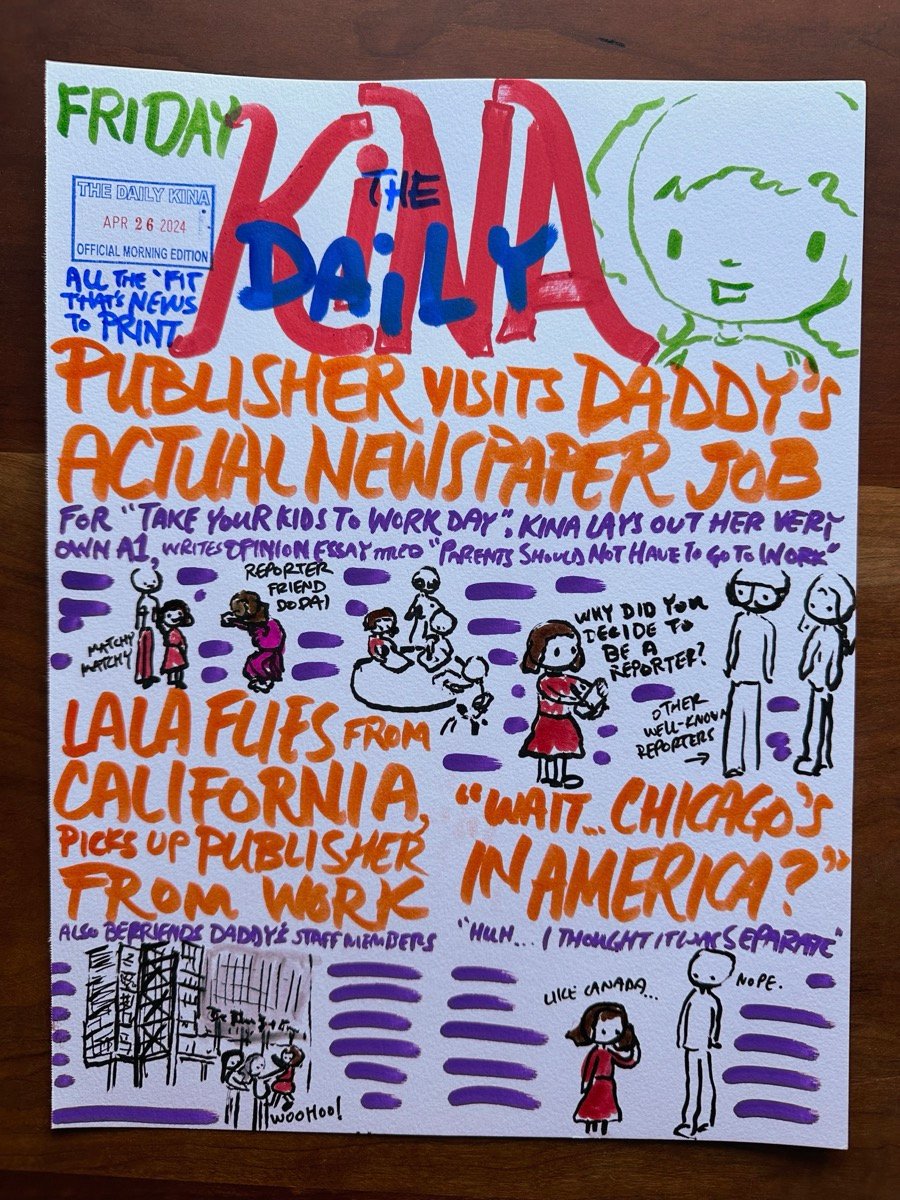 FRIDAY
THE DAILY KINA
APR 26 2024
OFFICIAL MORNING EDITION
ALL THE "FIT
THAT'S NEWS
TO PRINT
KiNA
THE
DAiLY
PUBLISHER VISITS DADDY'S
ACTUAL NEWSPAPER JOB
FOR "TAKE YOUR KIDS TO WORK DAY", KINA LAYS OUT HER VERY
OWN A1, WRITES OPINION ESSAY TITLED "PARENTS SHOULD NOT HAVE TO GO TO WORK"
MATCHY
MATCHY
REPORTER
FRIEND
DODAI
WHY DID YOU
DECIDE TO
BE A
REPORTER?
OTHER
WELL-KNOWN
REPORTERS
LALA FLIES FROM
CALIFORNIA,
PICKS UP PUBLISHER
FROM WORK
ALSO BEFRIENDS DADDY'S STAFF MEMBERS
WOOHOO!
"WAIT... CHICAGO'S
IN AMERICA?"
"HUH... I THOUGHT IT WAS SEPARATE"
LIKE CANADA...
NOPE.